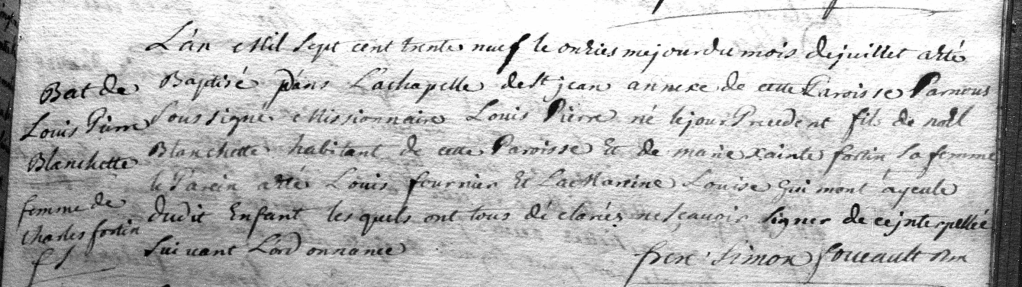 L'an Mil Sept cent trente neuf le onziesme jour du mois de juillet a été
Bat de
Louis Pierre
Blanchette
Baptisé dans La chapelle de st jean annexe de cette Paroisse Par nous
Soussigné Missionnaire Louis Pierre né le jour Precedent fils de noel
Blanchette habitant de cette Paroisse Et de marie xainte fortin sa femme
le Parein a été Louis fournier Et La Mareine Louise Guimont ayeule
femme de
Charles fortin
dudit Enfant lesquels ont tous déclarés ne sçavoir signer de ce interpellé
Suivant L'ordonnance
frere Simon foucault